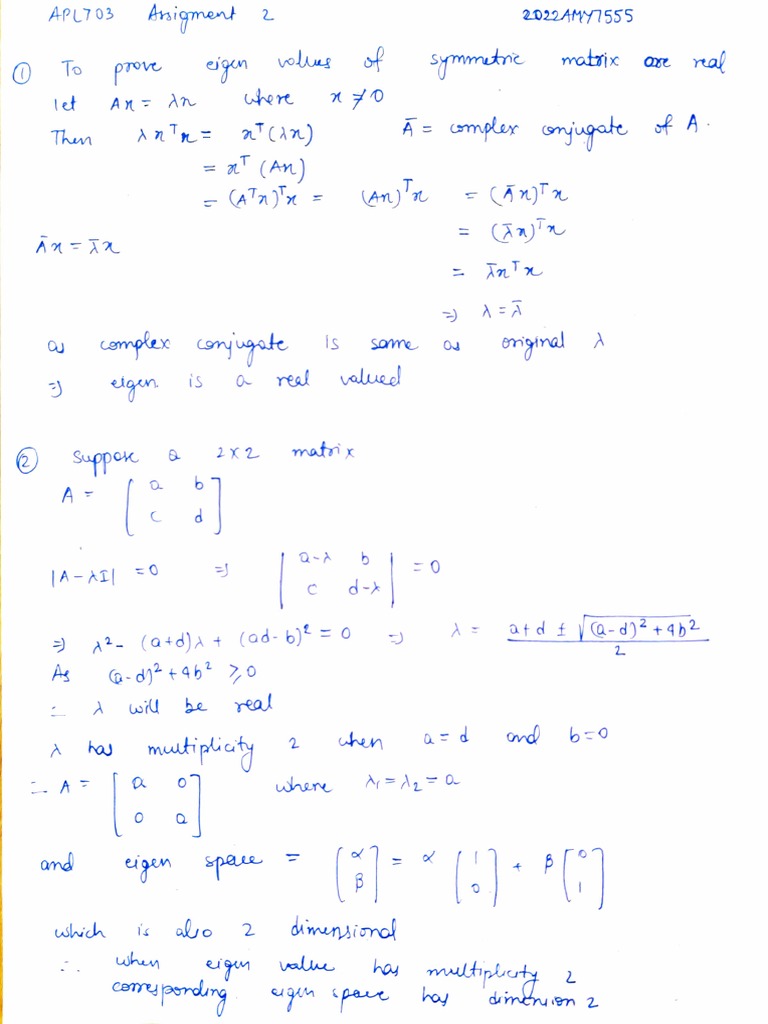 APL703 Assigment 2 2022AMY7555
① To prove eigen values of symmetric matrix are real
let Ax = λx where x ≠ 0
Then λxᵀx = xᵀ(λx) Ā = complex conjugate of A.
= xᵀ (Ax)
= (Aᵀx)ᵀx = (Ax)ᵀx = (Āx)ᵀx
= (λ̄x)ᵀx
Āx = λ̄x
= λ̄xᵀx
⇒ λ = λ̄
as complex conjugate is same as original λ
⇒ eigen is a real valued
② Suppose a 2x2 matrix
A = [a b
c d]
|A-λI| = 0 ⇒ |a-λ b
c d-λ| = 0
⇒ λ² - (a+d)λ + (ad-b)² = 0 ⇒ λ = (a+d ± √((a-d)² + 4b²))/2
As (a-d)² + 4b² ≥ 0
∴ λ will be real
λ has multiplicity 2 when a=d and b=0
∴ A = [a 0
0 a] where λ₁=λ₂=a
and eigen space = [α
β] = α [1
0] + β [0
1]
which is also 2 dimensional
∴ when eigen value has multiplicity 2
corresponding eigen space has dimension 2